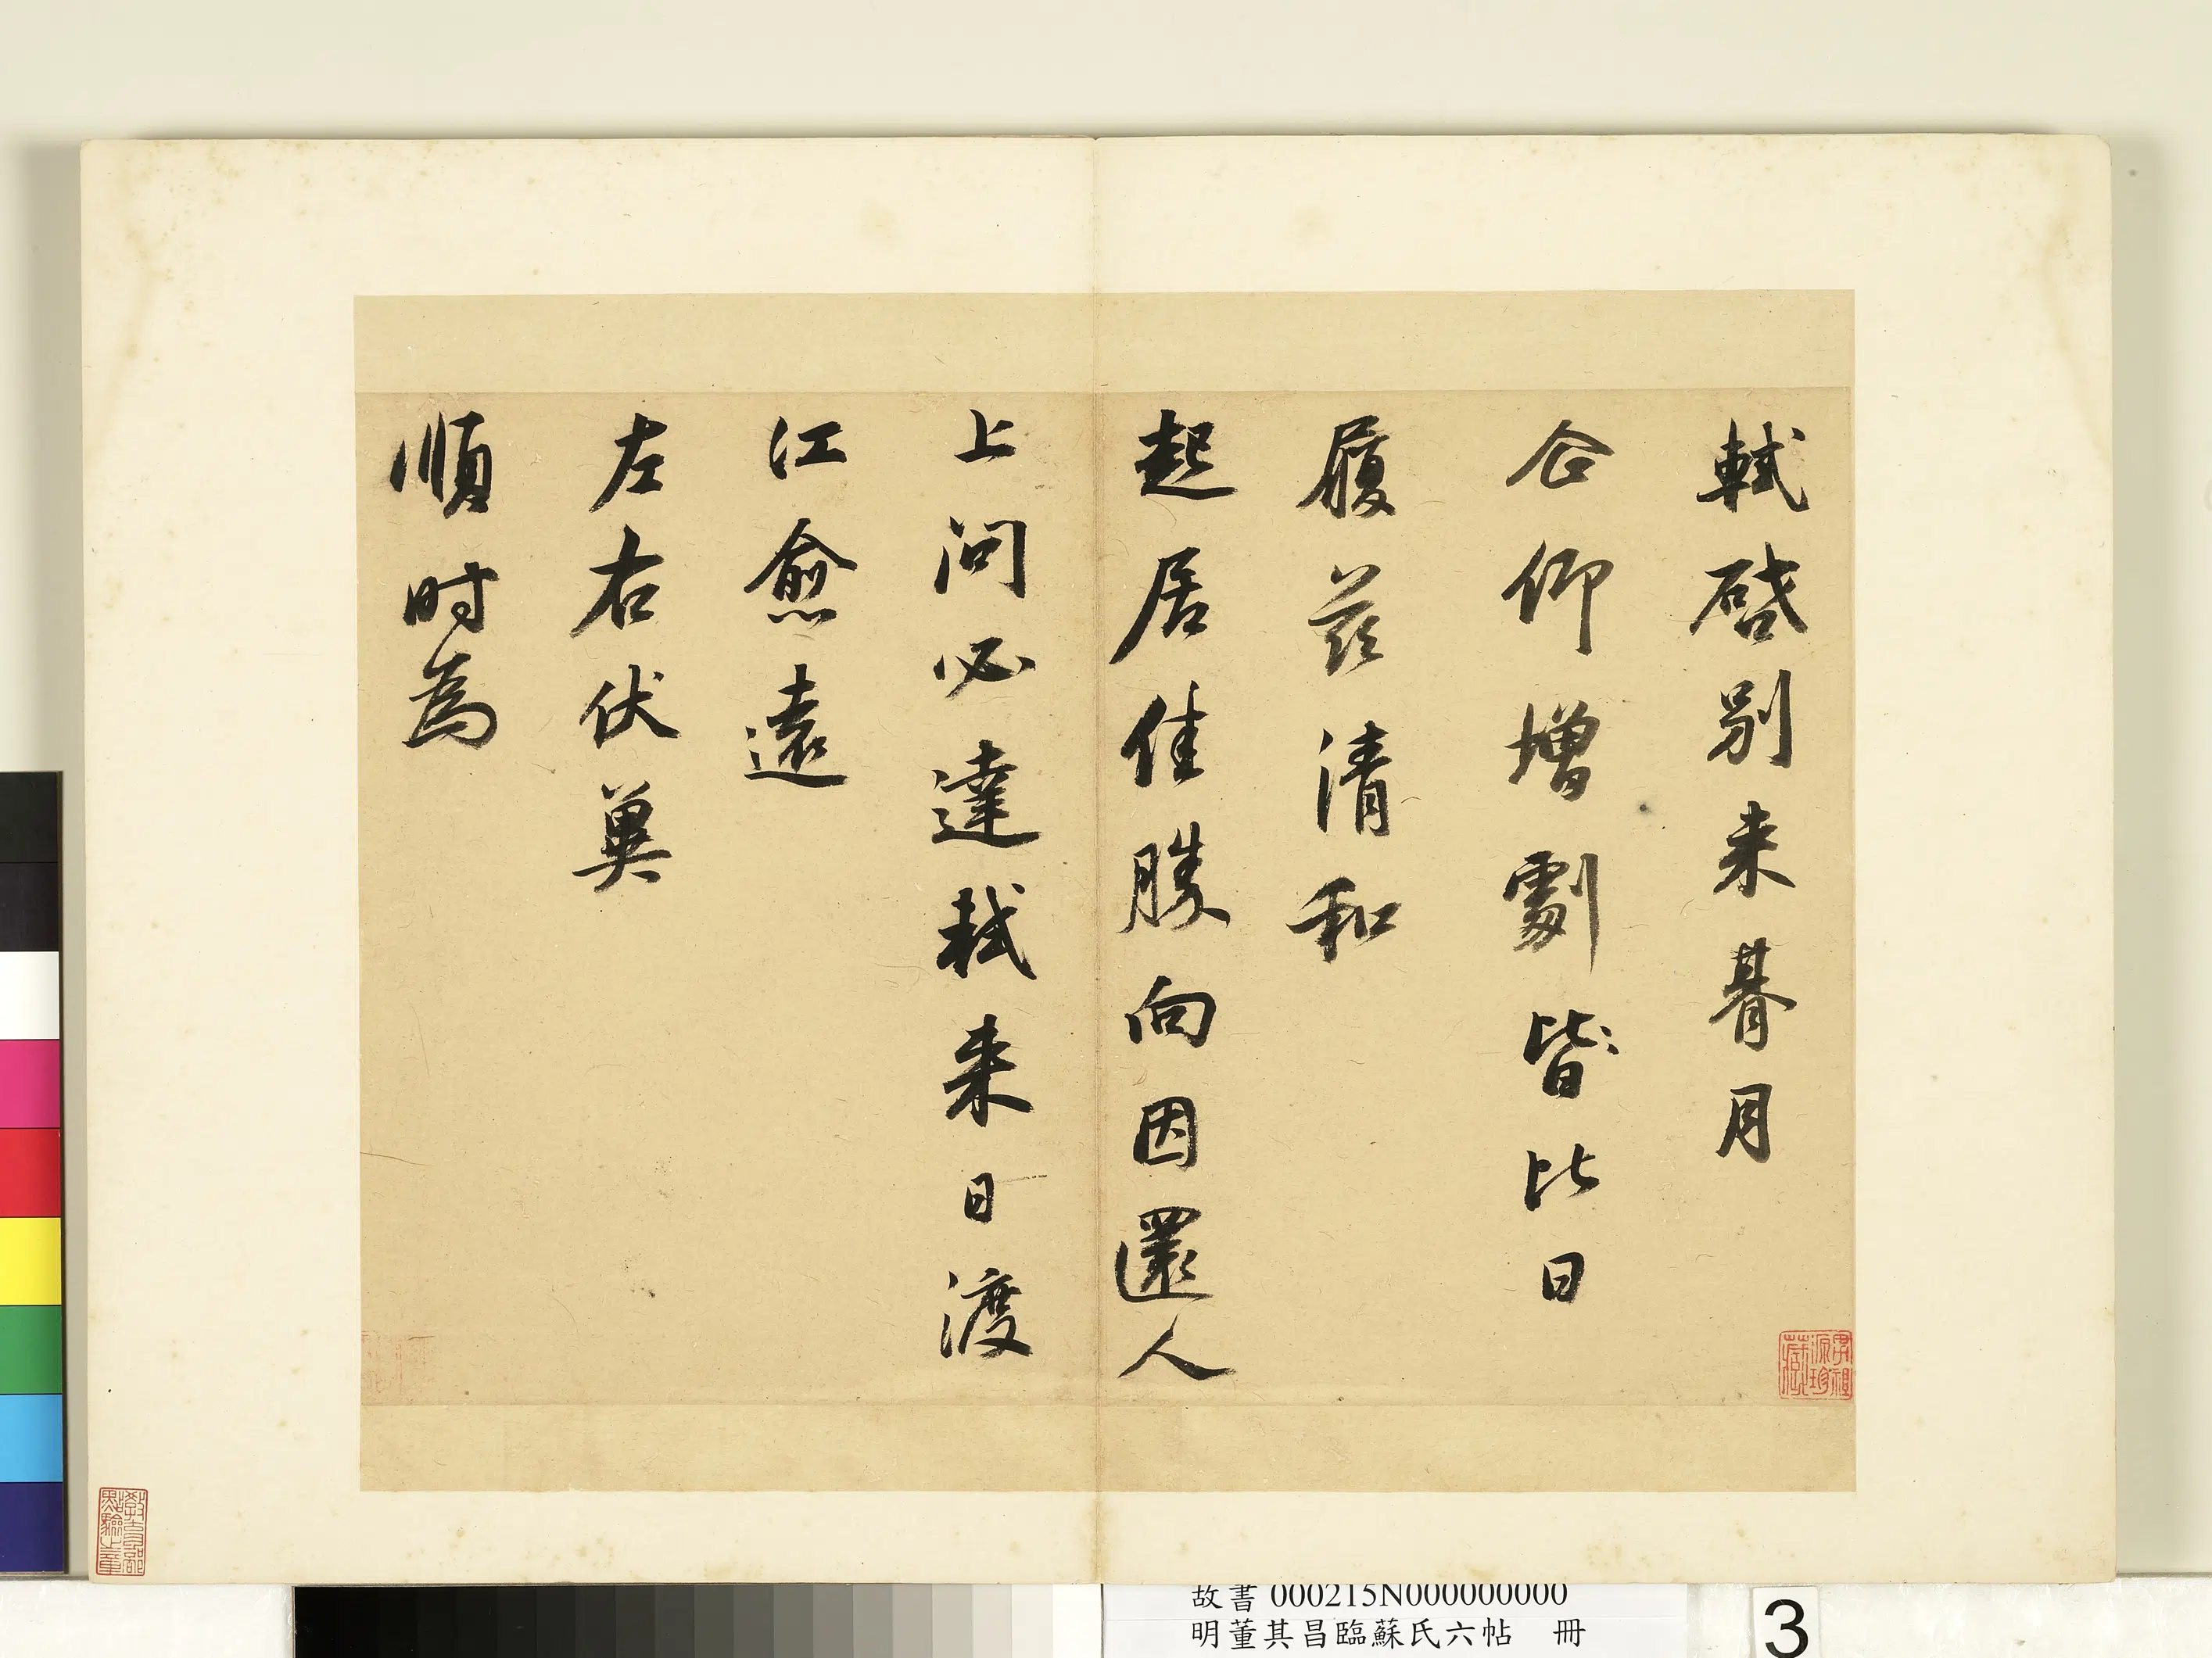 軾啓別来朞月
企仰增劇皆比日
履茲清和
起居佳勝向因還人
上問必達軾来日渡
江愈遠
左右伏冀
順时為
君祖源珍藏
教育部點驗之章
故書 000215N000000000
明董其昌臨蘇氏六帖 冊
3